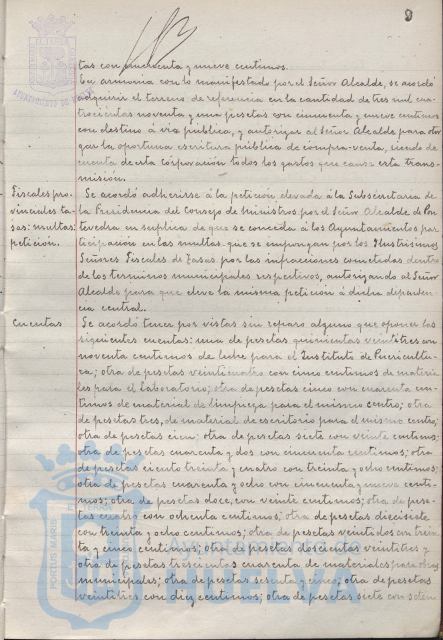 tas con cincuenta y nueve centimos.
En armonia con lo manifestado por el Señor Alcalde, se acordó
adquirir el terreno de referencia en la cantidad de tres mil cua-
trocientas noventa y una pesetas con cincuenta y nueve centimos
con destino á via pública, y autorizar al Señor Alcalde para otor
gar la oportuna escritura pública de compra-venta, siendo de
cuenta de esta corporación todos los gastos que cause esta trans-
misión.
Fiscales pro-
vinciales ta-
sas: multas:
petición.
Se acordó adherirse á la petición elevada á la Subsecretaria de
la Presidencia del Consejo de Ministros por el Señor Alcalde de Pon
tevedra en súplica de que se conceda á los Ayuntamientos par
ticipación en las multas que se impongan por los Ilustrisimos
Señores Fiscales de Tasas por las infracciones cometidas dentro
de los terminos municipales respectivos, autorizando al Señor
Alcalde para que eleve la misma petición á dicha dependen-
cia central.
Cuentas
Se acordó tener por vistas sin reparo alguno que oponer las
siguientes cuentas: una de pesetas quinientas veintitres con
noventa centimos de leche para el Instituto de Puericultu-
ra; otra de pesetas veinticuatro con cinco centimos de materia
les para el Laboratorio; otra de pesetas cinco con cuarenta cen-
timos de material de limpieza para el mismo centro; otra
de pesetas tres, de material de escritorio para el mismo centro;
otra de pesetas cien; otra de pesetas siete con veinte centimos;
otra de pesetas cuarenta y dos con cincuenta centimos; otra
de pesetas ciento treinta y cuatro con treinta y ocho centimos;
otra de pesetas cuarenta y ocho con cincuenta y nueve centi-
mos; otra de pesetas doce, con veinte centimos; otra de pese-
tas cuatro con ochenta centimos; otra de pesetas diecisiete
con treinta y ocho centimos; otra de pesetas veintidos con trein
ta y cinco centimos; otra de pesetas doscientas veintitres y
otra de pesetas trescientas cuarenta de materiales para obras
municipales; otra de pesetas sesenta y cinco; otra de pesetas
veintitres con diez centimos; otra de pesetas siete con seten
PORTUS MARIS
TERRAE